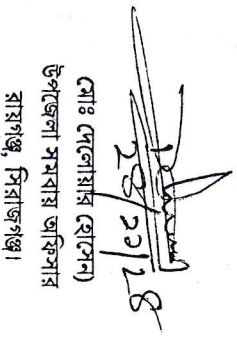 ২৪/১১/২৪
(মোঃ দেলোয়ার হোসেন)
উপজেলা সমবায় অফিসার
রায়গঞ্জ, সিরাজগঞ্জ।